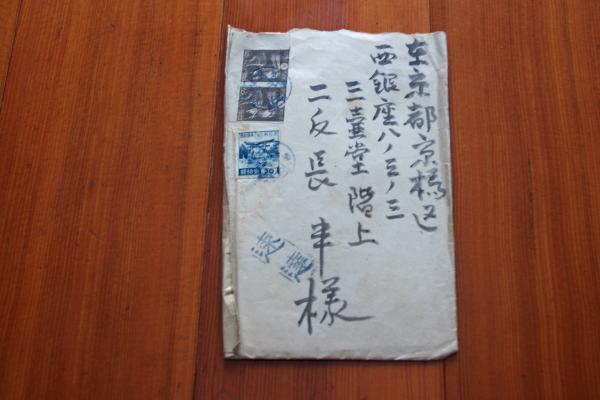 東京都京橋区
西銀座八ノ三ノ三
三壷堂階上
二反長半様
速達